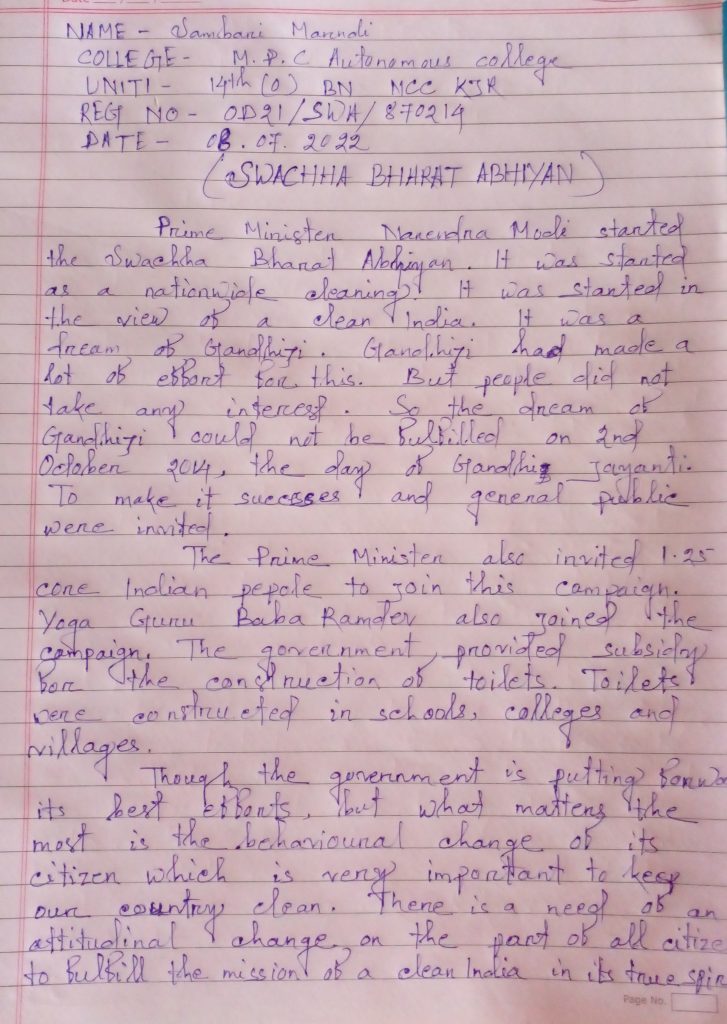 NAME - Sambari Marndi
COLLEGE - M.P.C Autonomous college
UNIT1 - 14th (O) BN NCC KJR
REGT NO - OD21/SWA/870214
DATE - 03.07.2022
(SWACHHA BHARAT ABHIYAN)
Prime Minister Narendra Modi started
the Swachha Bharat Abhiyan. It was started
as a nationwide cleaning. It was started in
the view of a clean India. It was a
dream of Gandhiji. Gandhiji had made a
lot of effort for this. But people did not
take any interest. So the dream of
Gandhiji could not be fulfilled on 2nd
October 2014, the day of Gandhi Jayanti.
To make it success and general public
were invited.
The Prime Minister also invited 1.25
core Indian pepole to join this campaign.
Yoga Guru Baba Ramdev also joined the
campaign. The government provided subsidry
for the construction of toilets. Toilets
were constructed in schools, colleges and
villages.
Though the government is putting forwa
its best efforts, but what matters the
most is the behavioural change of its
citizen which is very important to keep
our country clean. There is a need of an
attitudinal change on the part of all citize
to fulfill the mission of a clean India in its true spir
Page No.